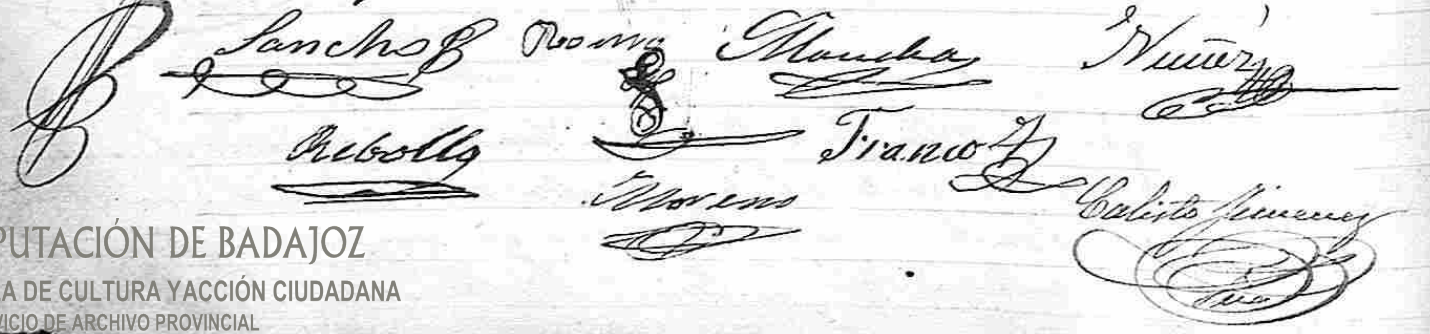 Sancho Mancha Nuñez
Rebollo Franco
Moreno Calisto Jimenez
PUTACIÓN DE BADAJOZ
A DE CULTURA YACCIÓN CIUDADANA
ICIO DE ARCHIVO PROVINCIAL